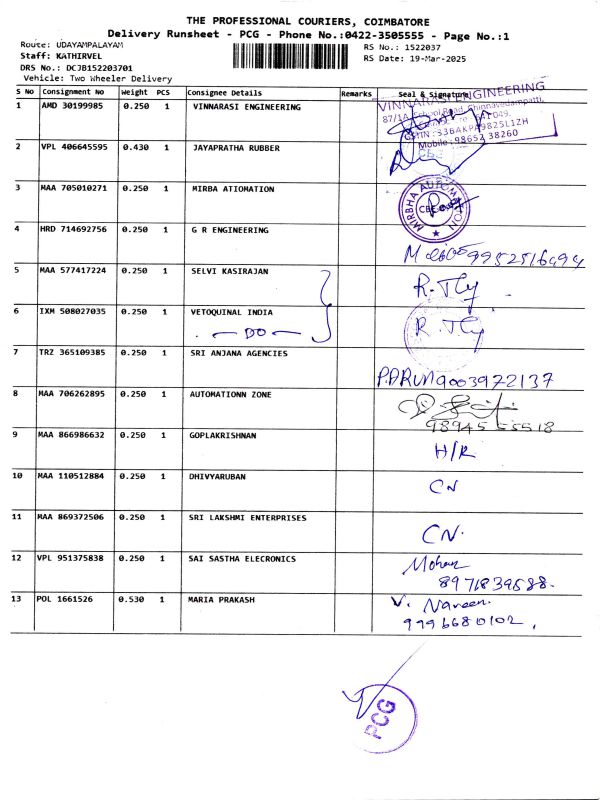 THE PROFESSIONAL COURIERS, COIMBATORE
Delivery Runsheet - PCG - Phone No.:0422-3505555 - Page No.:1
Route: UDAYAMPALAYAM
RS No.: 1522037
Staff: KATHIRVEL
RS Date: 19-Mar-2025
DRS No.: DCJB152203701
Vehicle: Two Wheeler Delivery
S No Consignment No Weight PCS Consignee Details Remarks Seal & Signature
1 AMD 30199985 0.250 1 VINNARASI ENGINEERING
VINNARASI ENGINEERING
87/1A, School Road, Chinnavedampatti,
641049.
GSTIN:33BAKPA9825L1ZH
Mobile: 98652 38260
2 VPL 406645595 0.430 1 JAYAPRATHA RUBBER
CBE
3 MAA 705010271 0.250 1 MIRBA ATIOMATION
MIRBHA AUTOMATION
4 HRD 714692756 0.250 1 G R ENGINEERING
9952516494
5 MAA 577417224 0.250 1 SELVI KASIRAJAN
6 IXM 508027035 0.250 1 VETOQUINAL INDIA
— DO —
7 TRZ 365109385 0.250 1 SRI ANJANA AGENCIES
P.ARUN 9003972137
8 MAA 706262895 0.250 1 AUTOMATIONN ZONE
98945 55518
9 MAA 866986632 0.250 1 GOPLAKRISHNAN
H/R
10 MAA 110512884 0.250 1 DHIVYARUBAN
CN
11 MAA 869372506 0.250 1 SRI LAKSHMI ENTERPRISES
CN.
12 VPL 951375838 0.250 1 SAI SASTHA ELECRONICS
Mohan
8971839688.
13 POL 1661526 0.530 1 MARIA PRAKASH
V. Naveen.
9996680102,
PCG